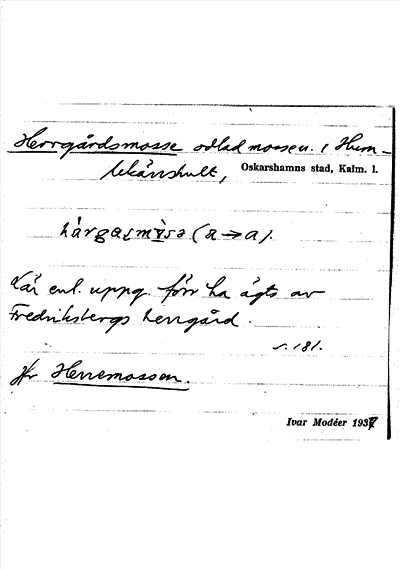 Herrgårdsmosse odlad mosse n. i Hum-
lekärrshult, Oskarshamns stad, Kalm. l.
hárgaʂmɤ̀sə (a→a).
Lär enl. uppg. förr ha ägts av
Fredriksbergs herrgård.
s. 181.
Jfr Herremossen.
Ivar Modéer 1937